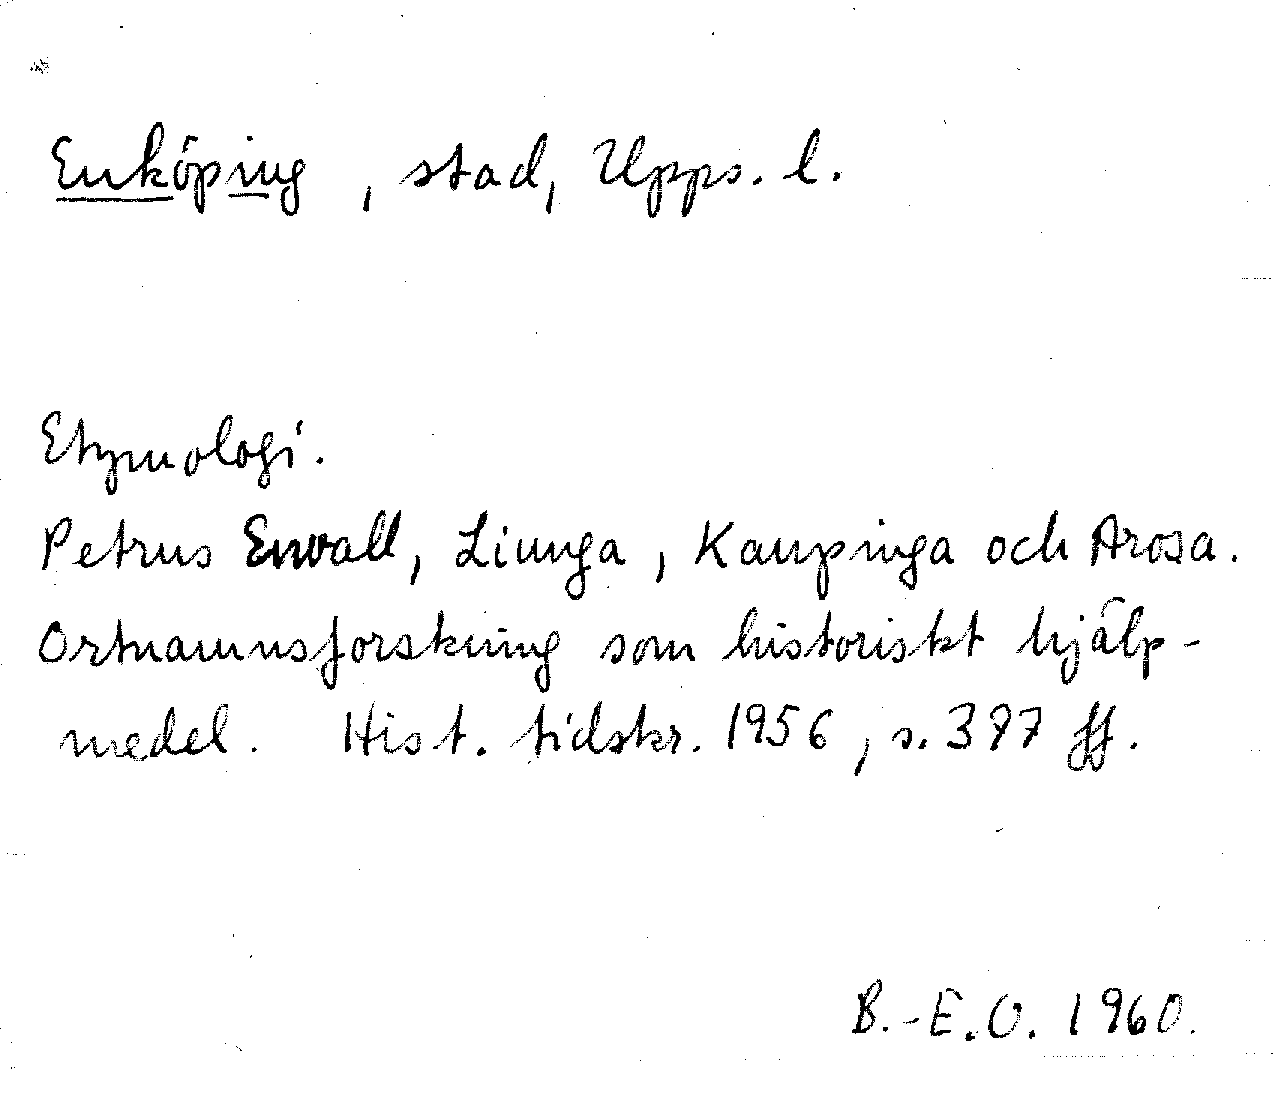 Enköping, stad, Upps. l.
Etymologi.
Petrus Envall, Liunga, Kaupinga och Arosa.
Ortnamnsforskning som historiskt hjälp-
medel. Hist. tidskr. 1956, s. 387 ff.
B.-E.O. 1960.